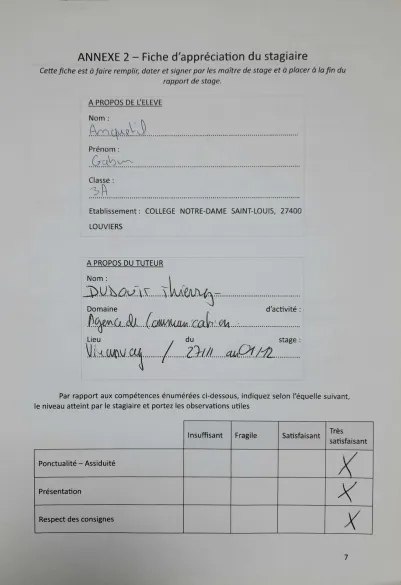 ANNEXE 2 – Fiche d'appréciation du stagiaire
Cette fiche est à faire remplir, dater et signer par les maître de stage et à placer à la fin du
rapport de stage.
A PROPOS DE L'ELEVE
Nom :
Anquetil
Prénom :
Gabin
Classe :
3A
Etablissement : COLLEGE NOTRE-DAME SAINT-LOUIS, 27400
LOUVIERS
A PROPOS DU TUTEUR
Nom :
Thierry
Domaine d'activité :
Agence de Communication
Lieu du stage :
/ 27/11 au 01/12
Par rapport aux compétences énumérées ci-dessous, indiquez selon l'équelle suivant,
le niveau atteint par le stagiaire et portez les observations utiles
Insuffisant Fragile Satisfaisant Très satisfaisant
Ponctualité – Assiduité X
Présentation X
Respect des consignes X
7